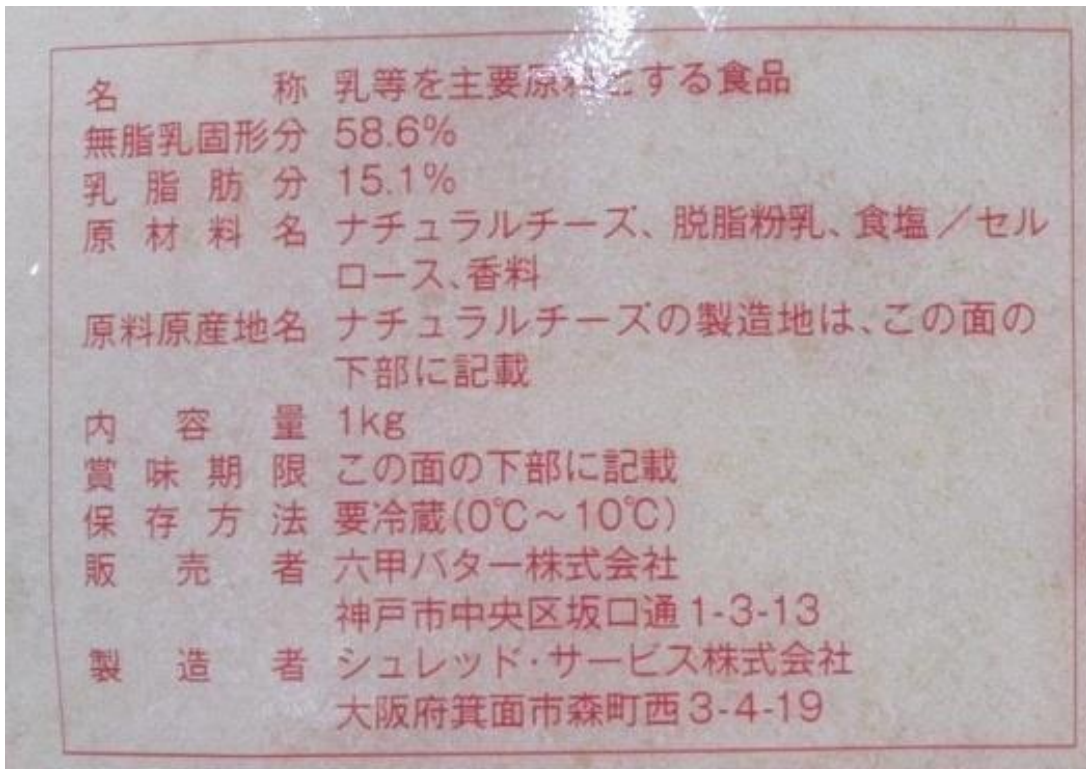 名称 乳等を主要原料とする食品
無脂乳固形分 58.6%
乳脂肪分 15.1%
原材料名 ナチュラルチーズ、脱脂粉乳、食塩/セル
ロース、香料
原料原産地名 ナチュラルチーズの製造地は、この面の
下部に記載
内容量 1kg
賞味期限 この面の下部に記載
保存方法 要冷蔵(0℃~10℃)
販売者 六甲バター株式会社
神戸市中央区坂口通1-3-13
製造者 シュレッド・サービス株式会社
大阪府箕面市森町西3-4-19